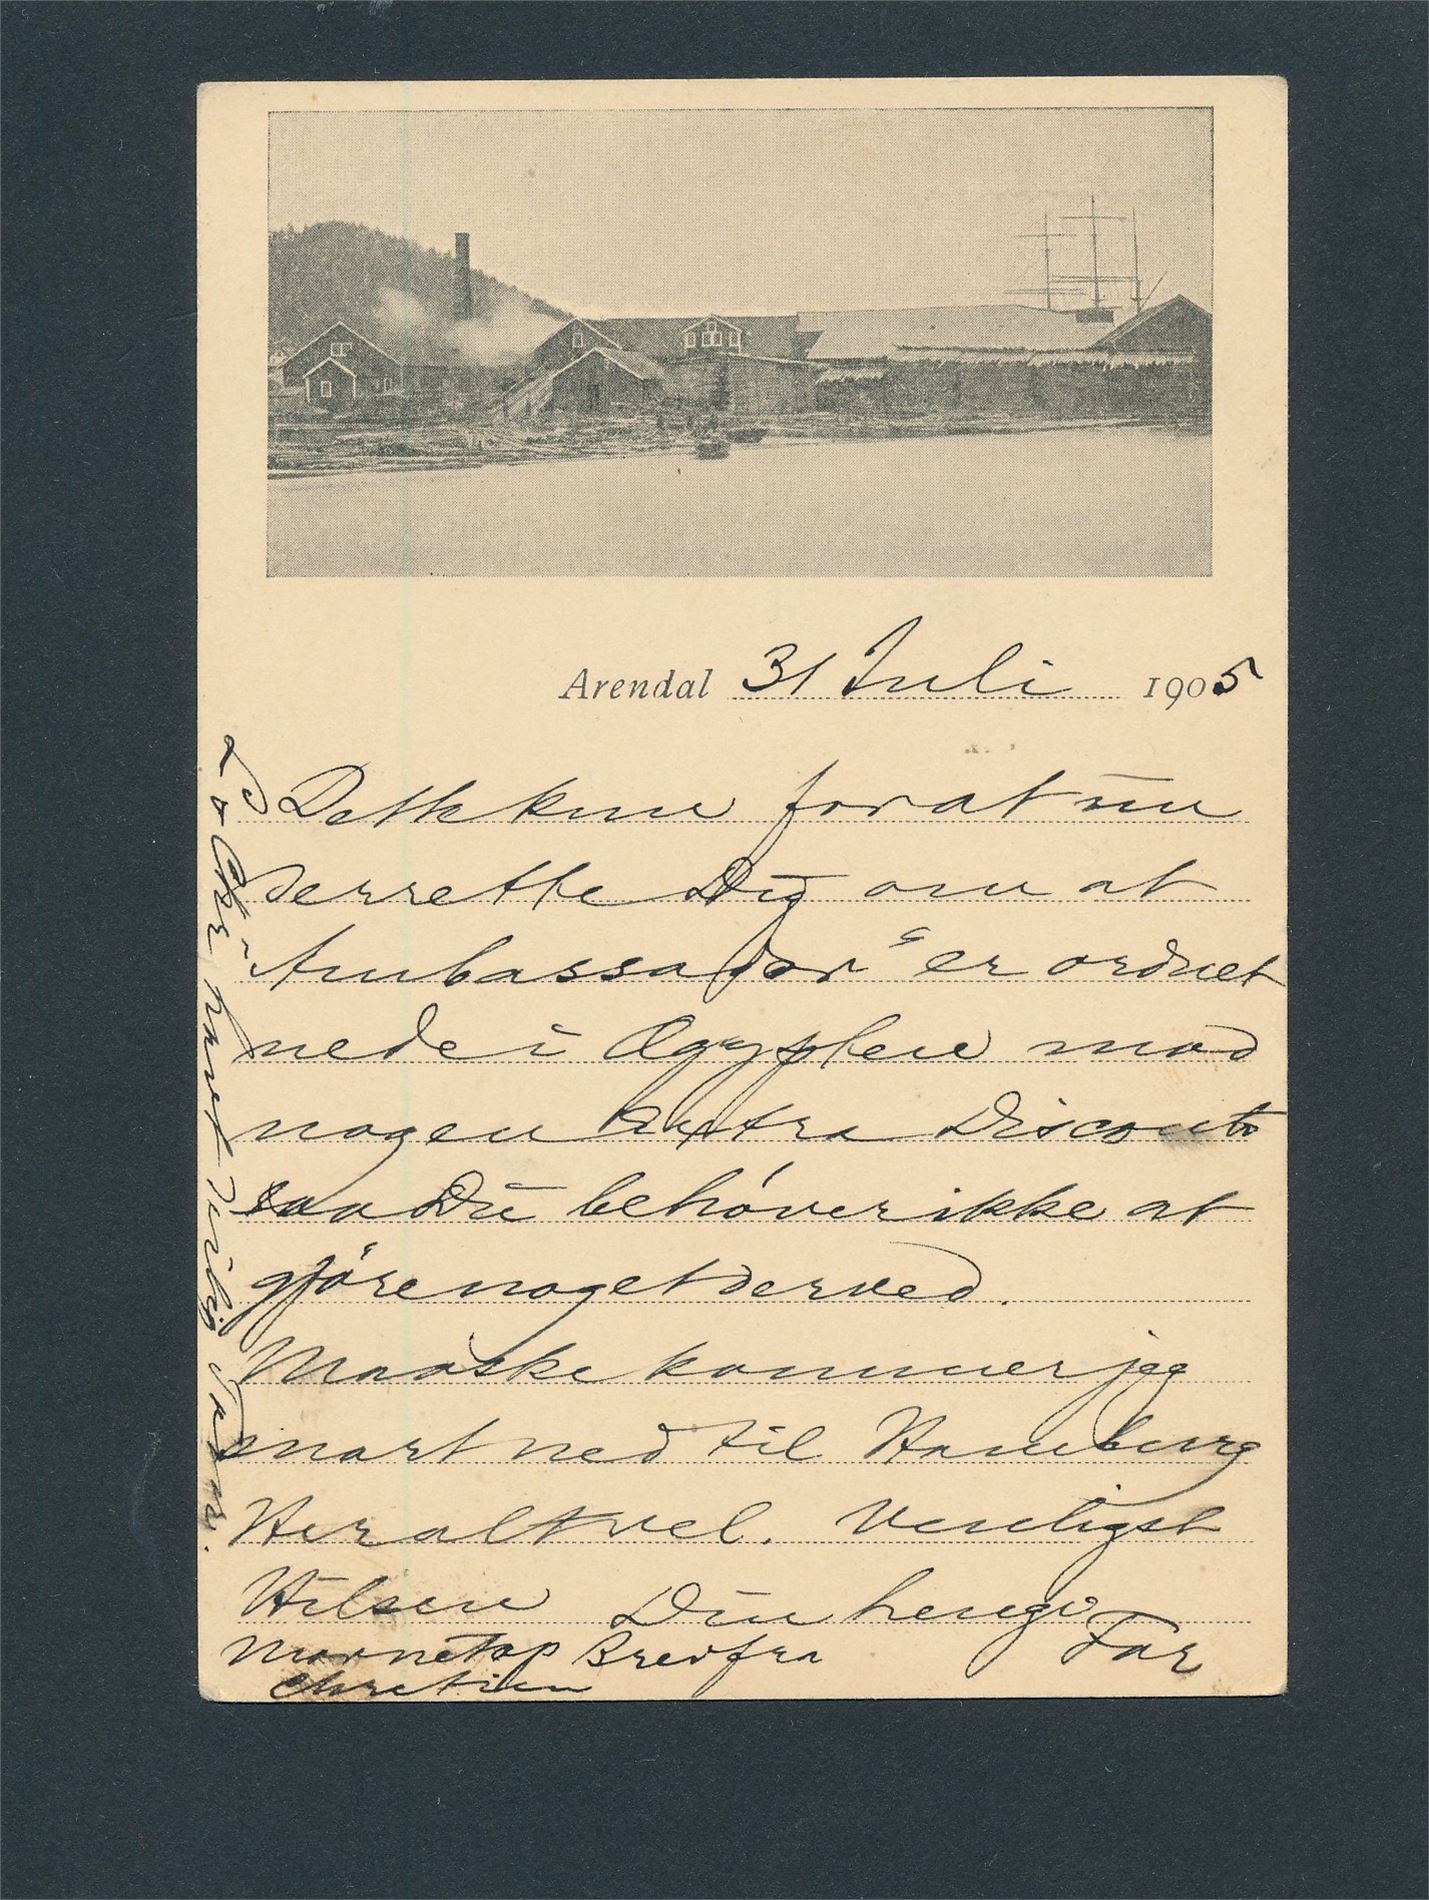 Arendal 31 Juli 1905
Dette kun for at un
derrette Dig om at
"Ambassador" er ordnet
nede i Ægypten mod
nogen Extra Disconto
saa Du behøver ikke at
gjøre noget derved.
Maaske kommer jeg
snart ned til Hamburg
Her alt vel. Venligst
Hilsen Din hengv
Far
Brev fra
Chretien